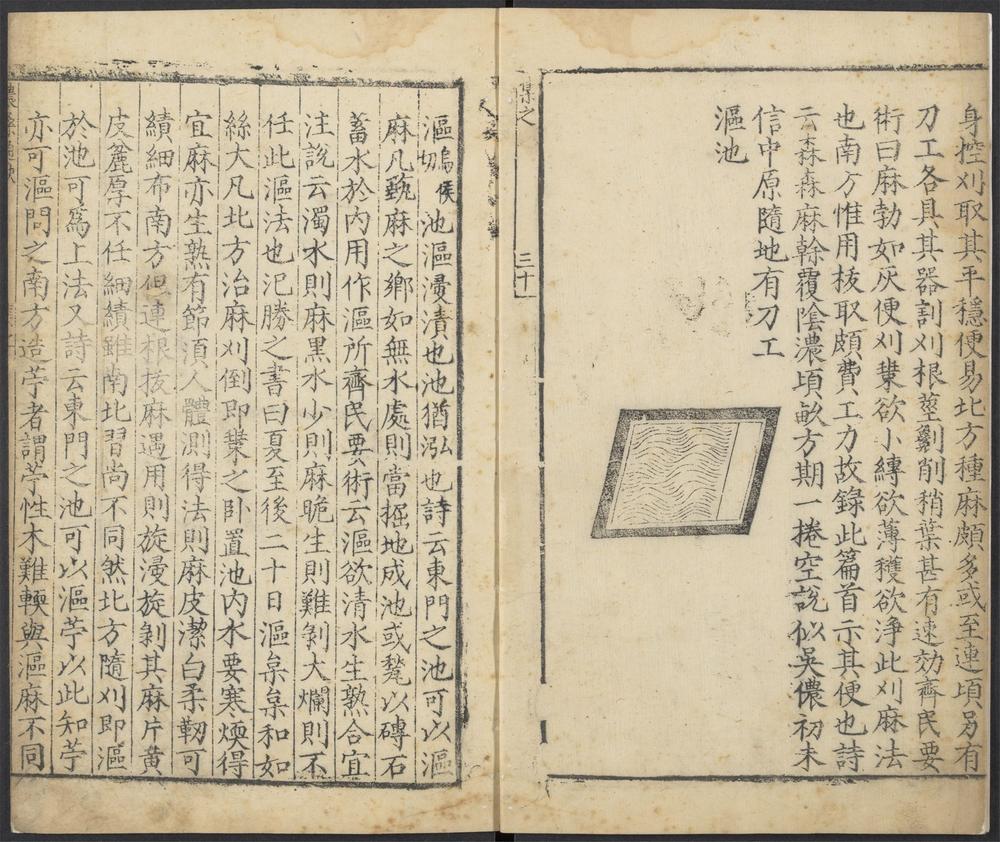 身控刈取其平穩便易北方種麻頗多或至連頃另有
刀工各具其器割刈根莖劗削稍葉甚有速効齊民要
術曰麻勃如灰便刈䒶欲小縛欲薄穫欲浄此刈麻法
也南方惟用拔取頗費工力故錄此篇首示其便也詩
云森森麻榦覆陰濃頃畝方期一捲空說似吳儂初未
信中原隨地有刀工
漚池
集之
三十
漚 池漚浸漬也池猶泓也詩云東門之池可以漚
麻凡蓺麻之鄉如無水處則當掘地成池或甃以磚石
蓄水於内用作漚所齊民要術云漚欲清水生熟合宜
注說云濁水則麻黒水少則麻脆生則難剝大爛則不
任此漚法也氾勝之書曰夏至後二十日漚枲枲和如
絲大凡北方治麻刈倒即䒶之卧置池内水要寒煗得
宜麻亦生熟有節湏人體測得法則麻皮潔白柔韌可
績細布南方但連根拔麻遇用則旋漫旋剝其麻片黄
皮麄厚不任細績雖南北習尚不同然北方隨刈即漚
於池可爲上法又詩云東門之池可以漚苧以此知苧
亦可漚問之南方造苧者謂苧性木難輭與漚麻不同